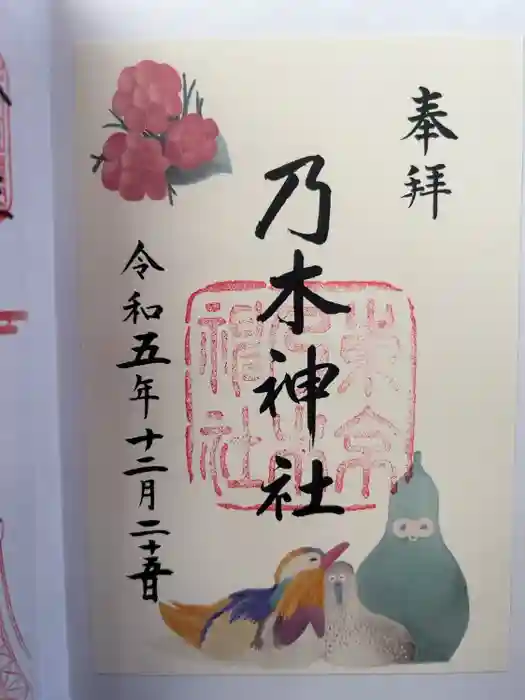 奉拝
乃木神社
東京乃木神社
令和五年十二月二十五日